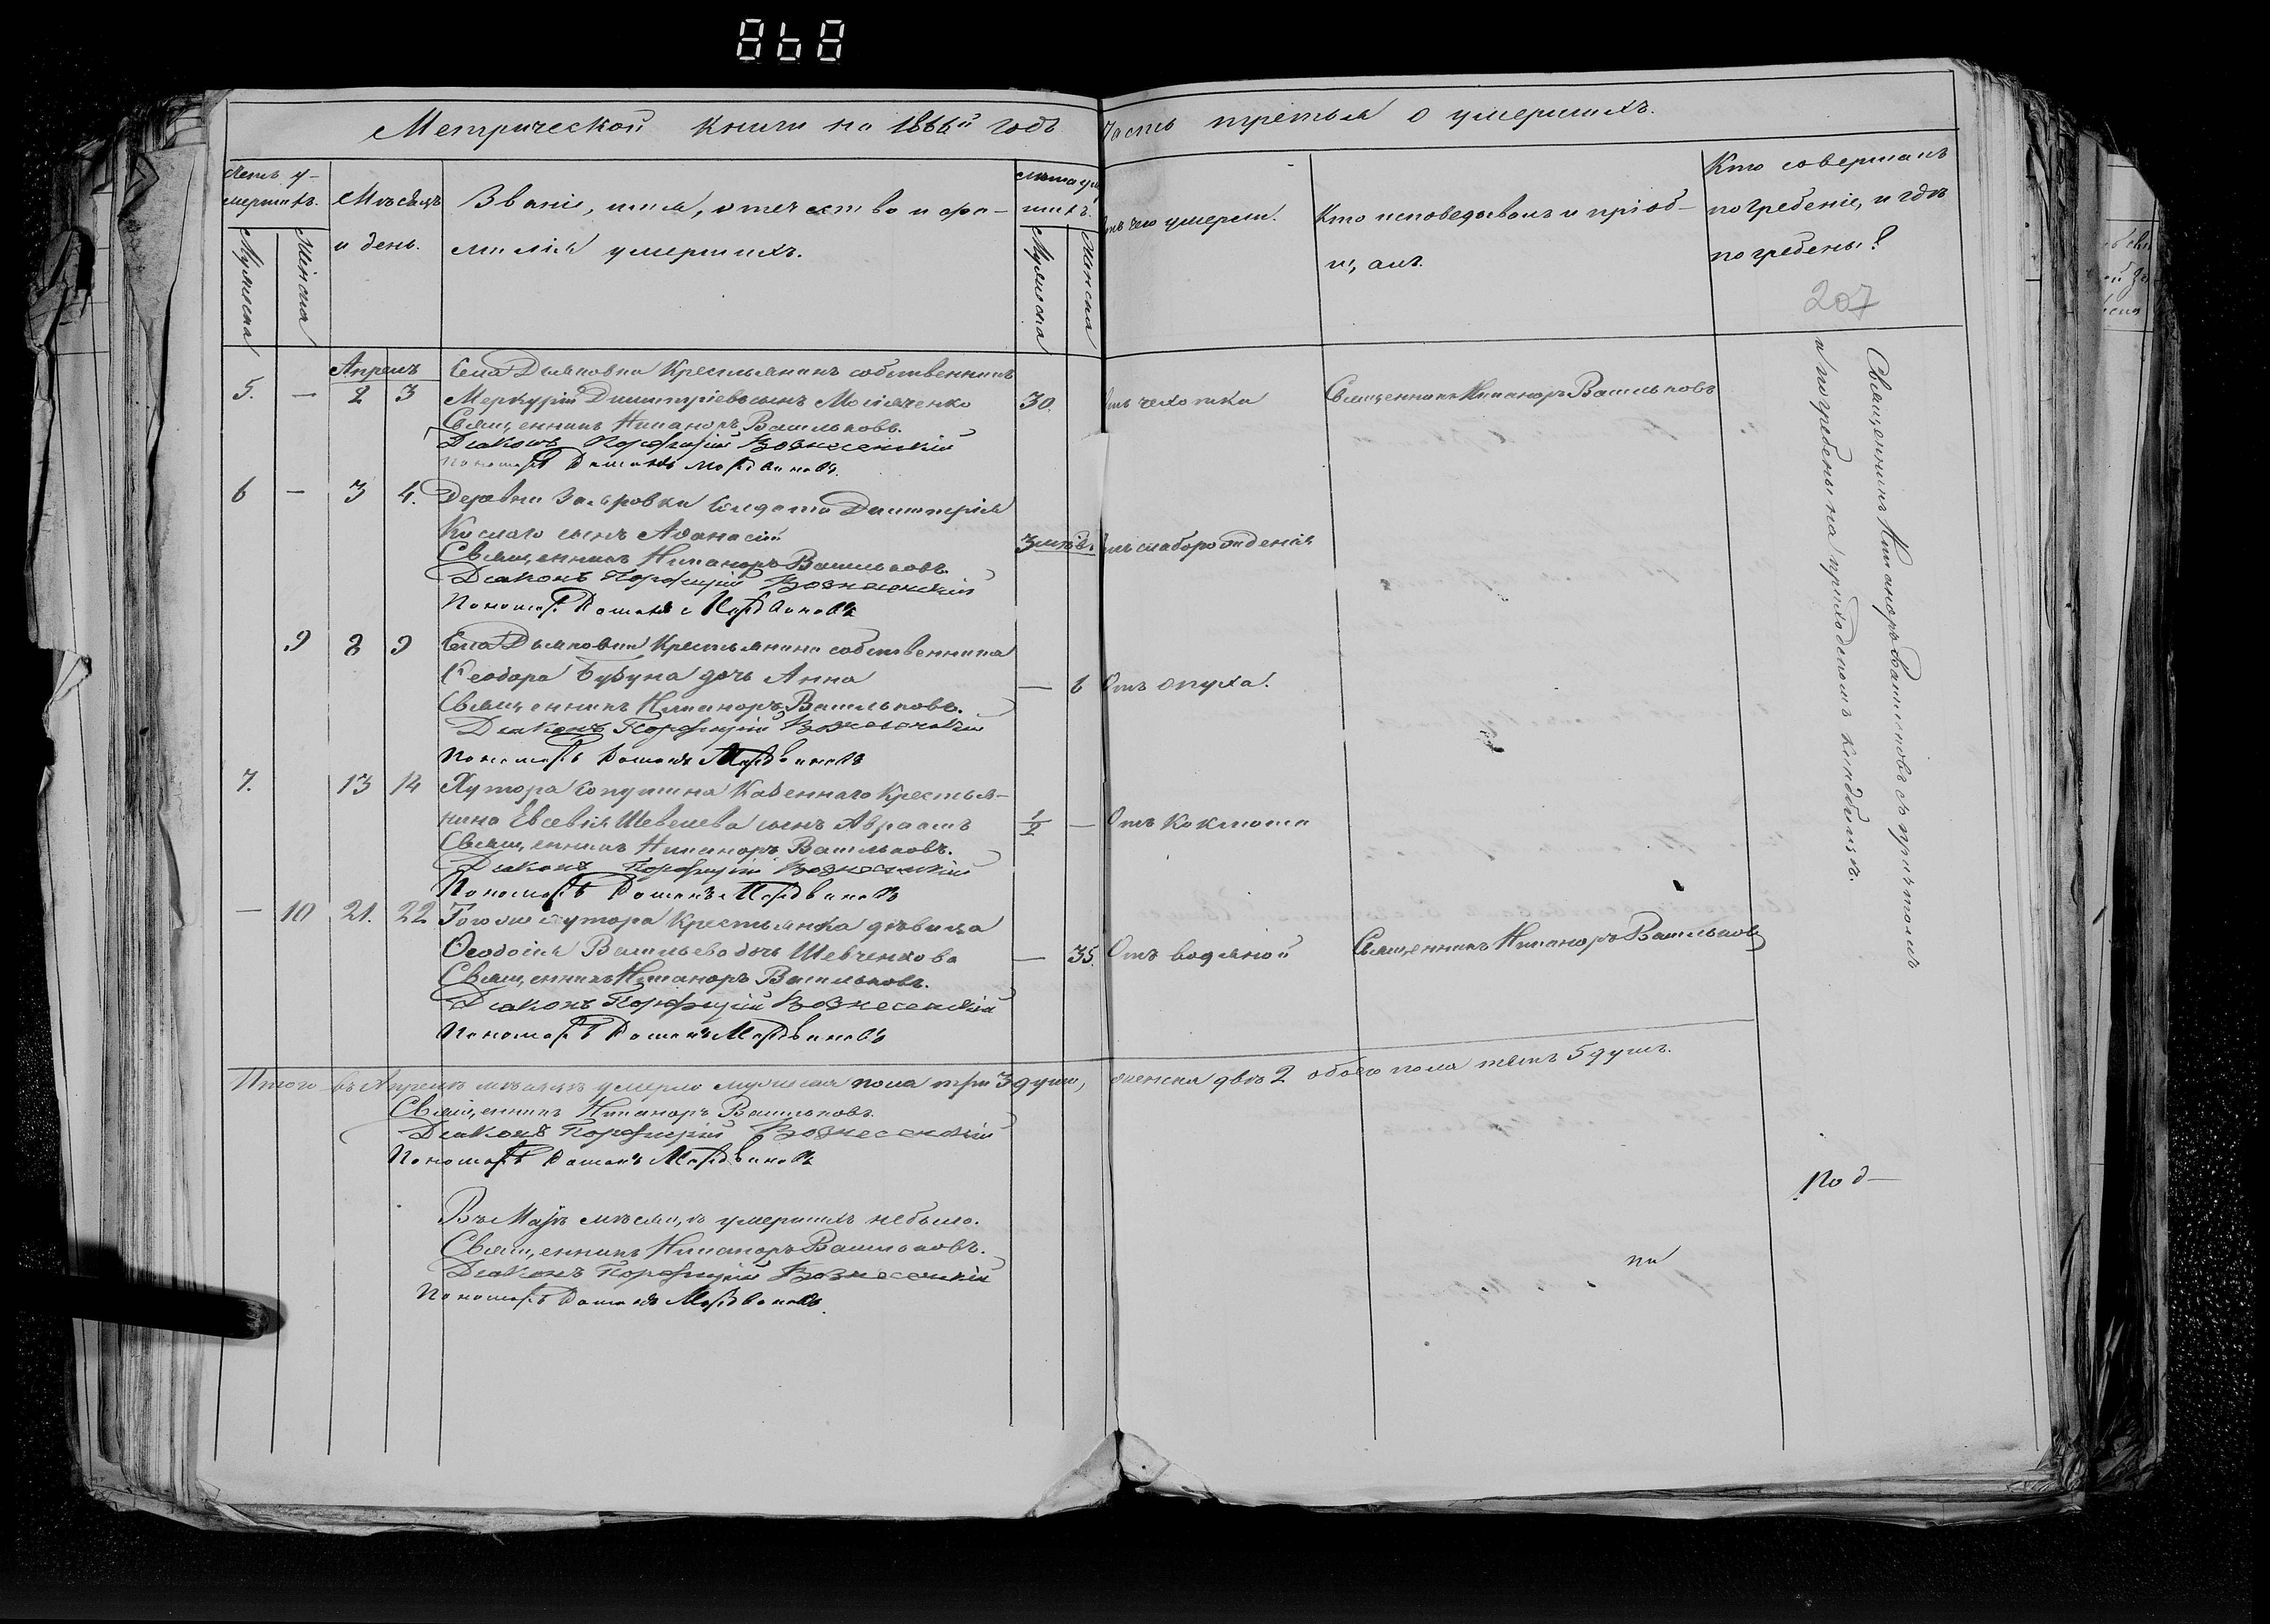 868
Метрической книги на 1866й годъ часть третья о умершихъ.
Счетъ умершихъ. Мѣсяцъ и день. Званіе, имя, отечество и фамилія умершихъ. Лѣта умершихъ. Отъ чего умерли. Кто исповѣдывалъ и пріобщалъ. Кто совершалъ погребеніе, и гдѣ погребены?
Мужеска Женска Мужеска Женска
207
Апрель
Села Дьяковки Крестьянинъ собственникъ
5. — 2 3 Меркурій Димитріевъ сынъ 30. Отъ чахотки Священникъ Никаноръ Васильковъ
Священникъ Никаноръ Васильковъ.
Діаконъ Порфирій Вознесенскій
Пономарь Романъ Мордвиновъ.
6 — 3 4. Деревни Солдата Димитрія
Кислаго сынъ Аѳанасій 3 Отъ слаборожденія
Священникъ Никаноръ Васильковъ.
Діаконъ Порфирій Вознесенскій
Пономарь Романъ Мордвиновъ
9 8 9 Села Дьяковки Крестьянина собственника
Ѳеодора Бубуна дочь Анна — 6 Отъ опуха.
Священникъ Никаноръ Васильковъ.
Діаконъ Порфирій Вознесенскій
Пономарь Романъ Мордвиновъ
7. 13 14 Хутора Казеннаго Крестья-
нина Евсевія Шевелева сынъ Авраамъ 1/2 — Отъ коклюша
Священникъ Никаноръ Васильковъ.
Діаконъ Порфирій Вознесенскій
Пономарь Романъ Мордвиновъ
— 10 21. 22 Того же хутора Крестьянка дѣвица
Ѳеодосія Васильева дочь Шевченкова — 35. Отъ водяной Священникъ Никаноръ Васильковъ
Священникъ Никаноръ Васильковъ.
Діаконъ Порфирій Вознесенскій
Пономарь Романъ Мордвиновъ
Священникъ Никаноръ Васильковъ съ причтомъ
и погребены на приходскомъ кладбищѣ.
Итого въ Апрелѣ мѣсяцѣ умерло мужеска пола три 3 души, женска двѣ 2 обоего пола пять 5 душъ.
Священникъ Никаноръ Васильковъ.
Діаконъ Порфирій Вознесенскій
Пономарь Романъ Мордвиновъ
Въ Маѣ мѣсяцѣ умершихъ небыло.
Священникъ Никаноръ Васильковъ.
Діаконъ Порфирій Вознесенскій
Пономарь Романъ Мордвиновъ.
Под—
пи